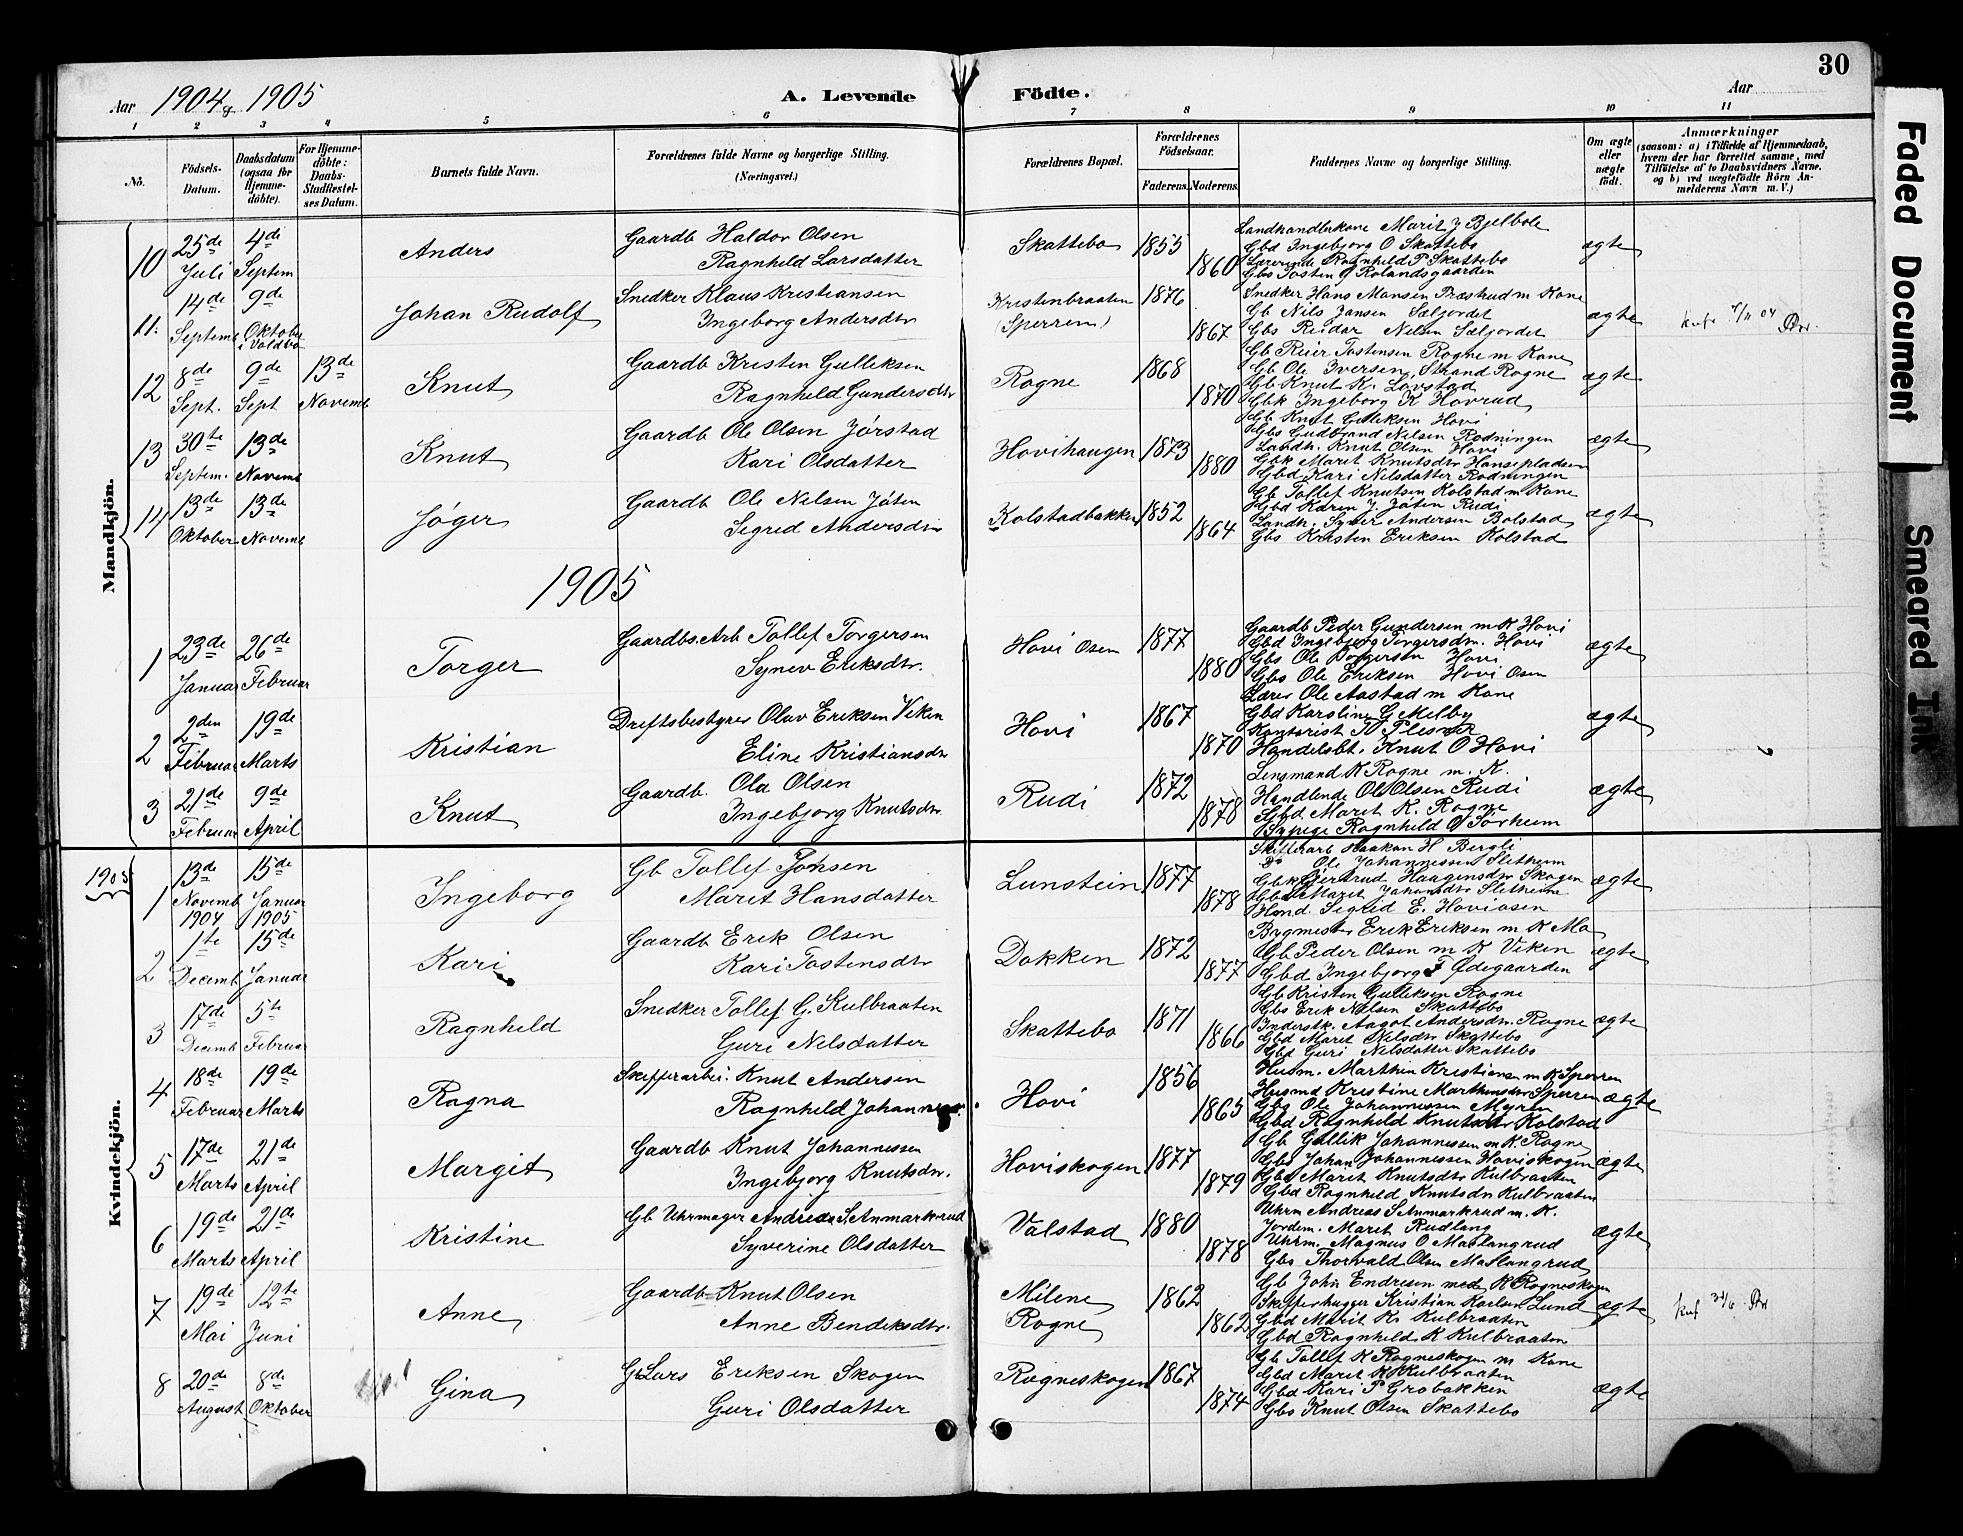 30
Aar 1904 g 1905
A. Levende Födte.
Aar
1 2 3 4 5 6 7 8 9 10 11
No.
Födsels-Datum.
Daabsdatum (ogsaa for Hjemme-döbte).
For Hjemme-döbte: Daabs-Stadfæstel-ses Datum.
Barnets fulde Navn.
Forældrenes fulde Navne og borgerlige Stilling.
(Næringsvei.)
Forældrenes Bopæl.
Forældrenes Födselsaar.
Faderens. Moderens.
Faddernes Navne og borgerlige Stilling.
Om ægte eller uægte födt.
Anmærkninger
(saasom: a) i Tilfælde af Hjemmedaab,
hvem der har forrettet samme, med
Tilföielse af to Daabsvidners Navne,
og b) ved uægtefödte Börn An-
melderens Navn m. V.)
Mandkjön.
10 25de Juli 4de Septem Anders
Gaardb Haldor Olsen
Ragnhild Larsdatter
Skattebo 1855 1860
Landhandlerkone Marit J Bjelbole
Gbd Ingebjorg O Skattebo
Lærerinde Ragnhild P Skattebo
Gbs Tosten O Rolandsgaarden
ægte
11. 14de Septemb 9de Oktober i Voldbo Johan Rudolf
Snedker Klaus Kristiansen
Ingeborg Andersdtr
Kristenbraaten (Sperren) 1876 1867
Snedker Hans Mansen Præstrud m Kone
Gb Nils Jansen Sæljordet
Gbs Reidar Nilsen Sæljordet
ægte
12 8de Sept. 9de Sept 13de Novemb Knut
Gaardb Kristen Gulleksen
Ragnheld Gundersdtr
Rogne 1868 1870
Gb Reier Tostensen Rogne m Kone
Gb Ole Iversen Strand Rogne
Gb Knut K. Lovstad
Gbk Ingeborg K Hovrud
ægte
13 30te Septem. 13de Novemb Knut
Gaardb Ole Olsen Jörstad
Kari Olsdatter
Hovihaugen 1873 1880
Gb Knut Gulleksen Hovi
Gbs Gudbrand Nilsen Rodningen
Landh. Knut Olsen Hovi
Gbk Marit Knutsdtr Hansepladsen
Gbd Kari Nilsdatter Rodningen
ægte
14 13de Oktober 13de Novemb Jøger
Gaardb Ole Nilsen Jøten
Segred Andersdtr
Kolstadbakken 1852 1864
Gb Tollef Knutsen Kolstad m Kone
Gbd Karen J. Jøten Rudi
Landh. Syver Andersen Bolstad
Gbs Kristen Eriksen Kolstad
ægte
1905
1 23de Januar 26de Februar Torger
Gaardbs. Arb Tollef Torgersen
Synev Eriksdtr.
Hovi Osen 1877 1880
Gaardb Peder Gundersen m K Hovi
Gbd Ingebjorg Torgersdtr. Hovi
Gbs Ole Torgersen Hovi
Gbs Ole Eriksen Hovi Osen
ægte
2 2den Februar 19de Marts Kristian
Driftsbestyrer Olav Eriksen Viken
Eline Kristiansdtr
Hovi 1867 1870
Lærer Ole Aastad m Kone
Gbd Karoline G Melby
Kontorist N Plesner
Handelsbt. Knut O Hovi
ægte
3 21de Februar 9de April Knut
Gaardb. Ola Olsen
Ingebjorg Knutsdtr.
Rudi 1872 1878
Lensmand K Rogne m. K.
Handlende Ole Olsen Rudi
Gbd Maret K. Rogne
Sypige Ragnheld O Sörheim
ægte
Kvindekjön.
1905
1 13de Novemb 1904 15de Januar 1905 Ingeborg
Gb Tollef Johsen
Maret Hansdatter
Lunstein 1877 1878
Skifferarb Haakon H Bergli
Do Ole Johannessen Sletheim
Gbk Gjertrud Haagensdtr Skogen
Gbd Maret Johansdtr Sletheim
Hand. Sigrid E. Hoviosen
ægte
2 1te Decemb 15de Januar Kari
Gaardb Erek Olsen
Kari Tostensdtr
Dokken 1872 1877
Bygmester Erik Eriksen m K Mo
Gb Peder Olsen m K Viken
Gbd Ingebjorg T Ødegaarden
ægte
3 17de Decemb 5te Februar Ragnheld
Snedker Tollef G. Kulbraaten
Guri Nelsdatter
Skattebo 1871 1866
Gb Kristen Gulleksen Rogne
Gbs Erik Nilsen Skattebo
Inderstk. Aagot Andersdtr. Rogne
Gbd Maret Nelsdtr Skattebo
Gbd Guri Nelsdatter Skattebo
ægte
4 18de Februar 19de Marts Ragna
Skifferarbei. Knut Andersen
Ragnheld Johannes
Hovi 1856 1865
Husm. Marthin Kristiansen m K Sperren
Husmd Kristine Marthinsdtr Sperren
Gbs Ole Johannessen Myren
Gbd Ragnheld Knutsdtr Kolstad
ægte
5 17de Marts 21de April Margit
Gaardb Knut Johannessen
Ingebjorg Knutsdtr.
Hoviskogen 1877 1879
Gb Gullik Johannessen m K. Rogne
Gbs Johan Johannessen Hoviskogen
Gbd Maret Knutsdtr Kulbraaten
Gbd Ragnheld Knutsdtr Kulbraaten
ægte
6 19de Marts 21de April Kristine
Gb Uhrmager Andreas S. Anmarkrud
Syverine Olsdatter
Valstad 1880 1878
Uhrm Andreas S Anmarkrud m. K.
Jordem. Maret Rudlang
Uhrm. Magnus O Maslangrud
Gbs Thorvald Olsen Maslangrud
ægte
7 19de Mai 12te Juni Anne
Gaardb Knut Olsen
Anne Bendeksdtr.
Milene Rogne 1862 1862
Gb John Endresen med K Rogneskogen
Skifferhugger Kristian Karlsen Lund
Gbd Marit K. Kulbraaten
Gbd Ragnheld K Kulbraaten
ægte
8 20de August 8de Oktober Gina
Gb Lars Eriksen Skogen
Guri Olsdatter
Rogneskogen 1867 1874
Gb Tollef K Rogneskogen m Kone
Gbd Maret K Kulbraaten
Gbd Kari P Grobakken
Gbs Knut Olsen Skattebo
ægte
Faded Document
Smeared Ink